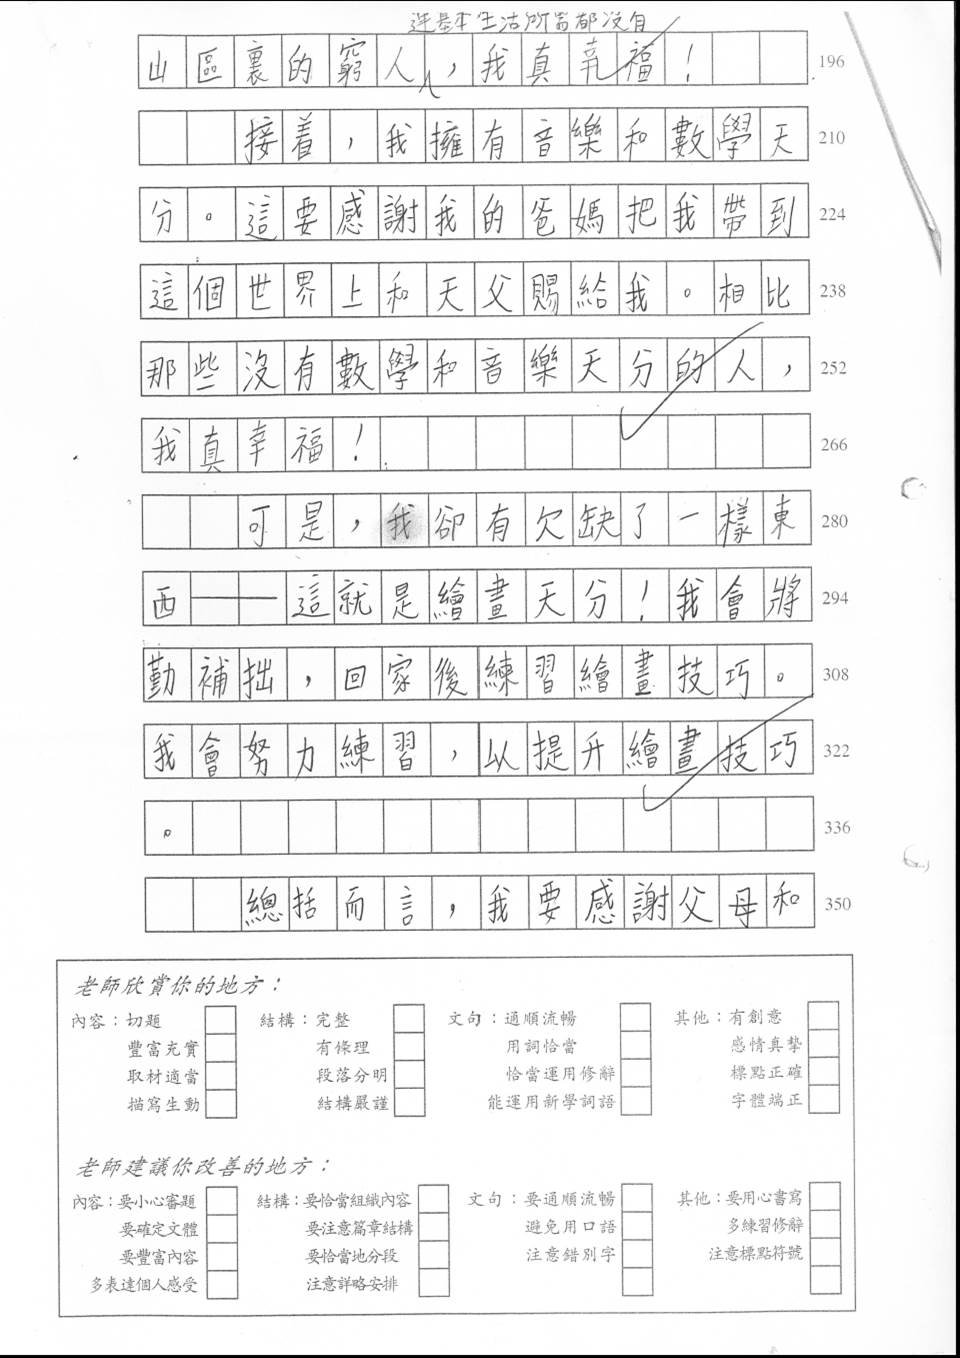 連基本生活所需都沒有
山區裏的窮人，我真幸福！ 196
接着，我擁有音樂和數學天 210
分。這要感謝我的爸媽把我帶到 224
這個世界上和天父賜給我。相比 238
那些沒有數學和音樂天分的人， 252
我真幸福！ 266
可是，我卻有欠缺了一樣東 280
西——這就是繪畫天分！我會將 294
勤補拙，回家後練習繪畫技巧。 308
我會努力練習，以提升繪畫技巧 322
。 336
總括而言，我要感謝父母和 350
老師欣賞你的地方：
內容：切題 結構：完整 文句：通順流暢 其他：有創意
豐富充實 有條理 用詞恰當 感情真摯
取材適當 段落分明 恰當運用修辭 標點正確
描寫生動 結構嚴謹 能運用新學詞語 字體端正
老師建議你改善的地方：
內容：要小心審題 結構：要恰當組織內容 文句：要通順流暢 其他：要用心書寫
要確定文體 要注意篇章結構 避免用口語 多練習修辭
要豐富內容 要恰當地分段 注意錯別字 注意標點符號
多表達個人感受 注意詳略安排